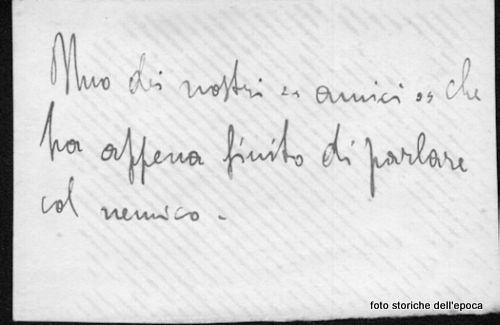 Uno dei nostri "amici" che
ha appena finito di parlare
col nemico.
foto storiche dell'epoca